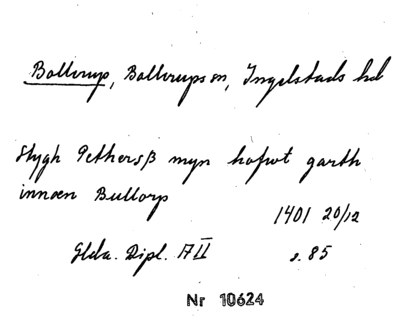 Bollerup, Bollerups sn, Ingelstads hd
Stygh Pethersß myn hofwt garth
innæn Bullorp
1401 20/12
Glda. Dipl. A II s. 85
Nr 10624